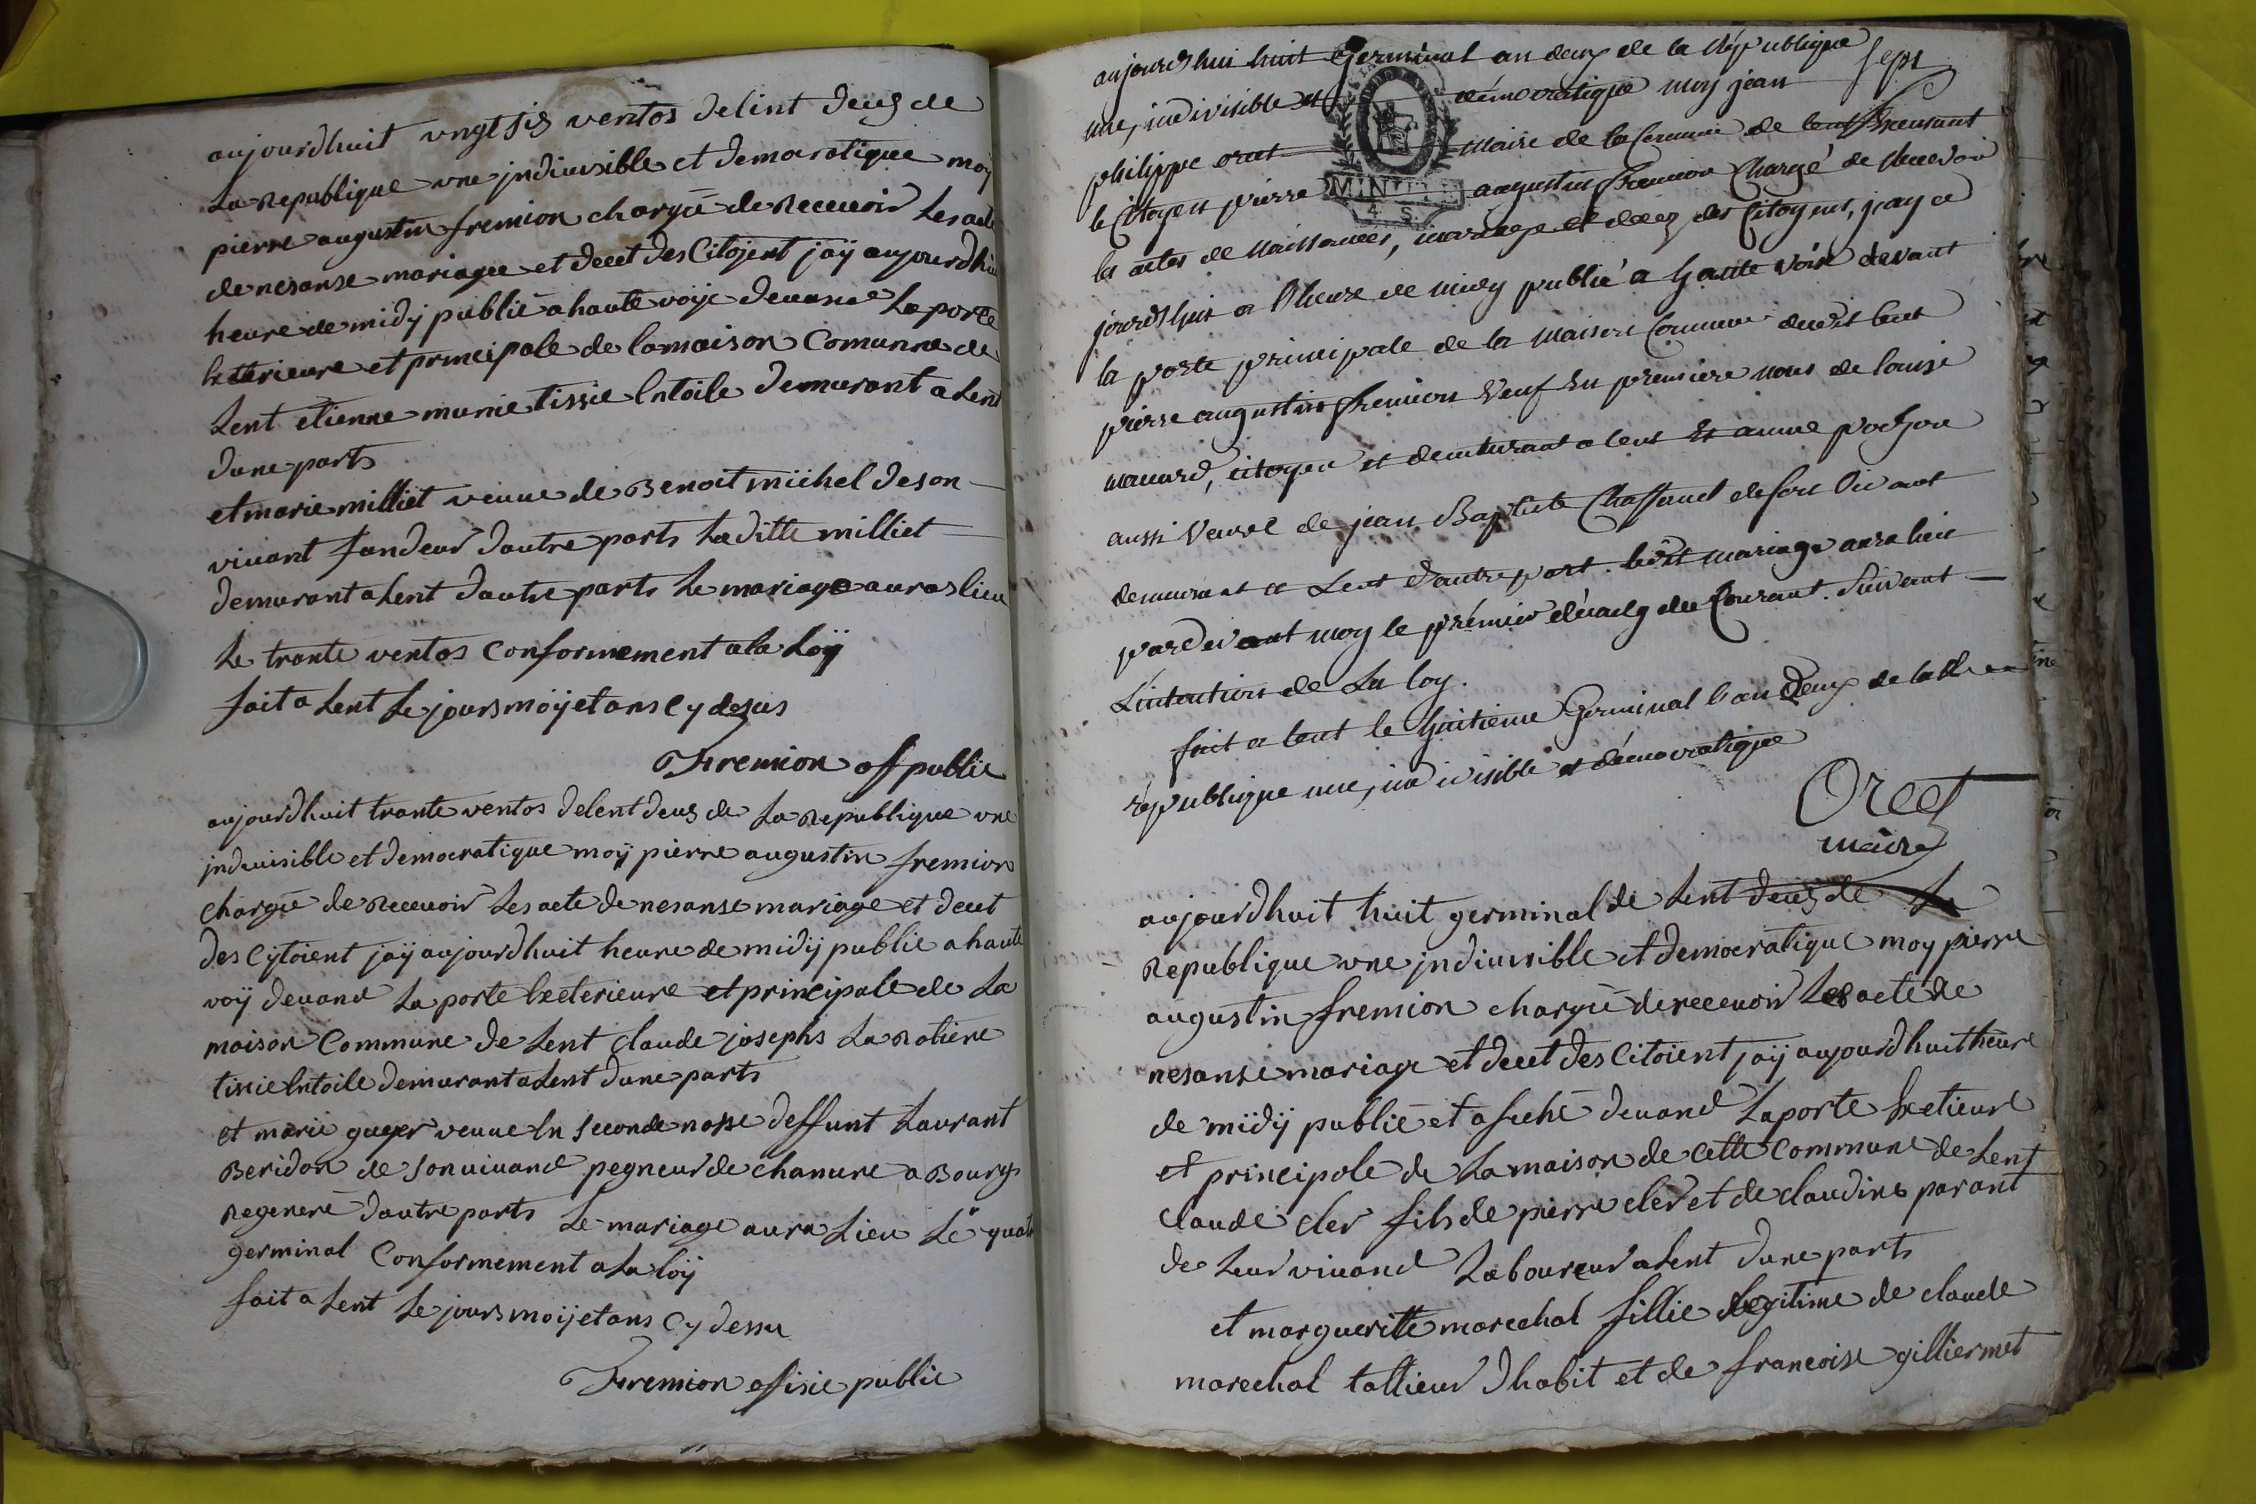 aujourdhuit vngt six ventos delent deus de
La Republique vne jndiuisible et demoratique moy
pierre augustin fremion chargé de Receuoir Les acte
de nesanse mariage et decet des Citojent jaÿ aujourdhui
heure de midÿ publié a haute voÿe deuand La porte
Exterieure et principale de la maison Comunne de
Lent etienne murie tissie Entoile demurant a Lent
dune parts
et marie milliet veuue de Benoit michel de son
viuant fandeur dautre parts Laditte milliet
demurant a Lent dautre parts Le mariage auras lieu
Le trante ventos Conformement ala Loÿ
fait a Lent Le jours moÿ et ans Cy desus
Fremion of public
aujourdhuit trante ventos delent deus de La Republique vne
jndiuisible et democratique moÿ pierre augustin fremion
chargé de Receuoir Les acte de nesanse mariage et decet
des Cytoient jaÿ aujourdhuit heure de midÿ publié a haute
voÿ deuand La porte Exterieure et principale de La
maison Commune de Lent Claude josephs La Ratiere
tissie Entoile demurant a Lent dune parts
et marie guyer veuue En seconde nosse deffunt Laurant
Beridon de son viuand pegneur de chanure a Bourg
Regeneré dautre parts Le mariage aura Lieu Le quatre
germinal Conformement a La loÿ
fait a Lent Le jours moÿ et ans Cy dessu
Fremion ofisie public
sept
aujourdhui huit Germinal an deux de la République
une, indivisible et démocratique moy jean
philippe oret maire de la Commune de lent
le Citoyen pierre augustin fremion Chargé de recevoir
MINUTE
4 S.
les actes de naissances, mariage et décez des Citoyens, j'ay ce
jourdhui a l'heure de midy publié a haute voix devant
la porte principale de la maison Commune dudit lent
pierre augustin fremion Veuf en premiere nous de louise
manard, citoyen et demeurant a lent et anne pochon
aussi Veuve de jean Baptiste Chaffaud de son Vivant
demeurant a Lent d'autre part. ledit mariage aura lieu
pardevant moy le prémier décady du Courant. Suivant
L'intention de La loy.
fait a lent le huitieme Germinal l'an Deux de la
république une, indivisible et démocratique
Oret
maire
aujourdhuit huit germinal de Lent deus de La
Republique vne jndiuisible et democratique moy pierre
augustin fremion chargé de receuoir Les acte de
nesanse mariage et decet des Citoient jaÿ aujourdhuit heure
de mïdÿ publié et afiché deuand La porte Exetieure
et principole de La maison de cette Commune de Lent
Claude cler fils de pierre cler et de claudine parant
de Leur viuand Laboureur a Lent dune parts
et margueritte marechal fillie Legitime de claude
marechal tallieur dhabit et de francoise gilliermet